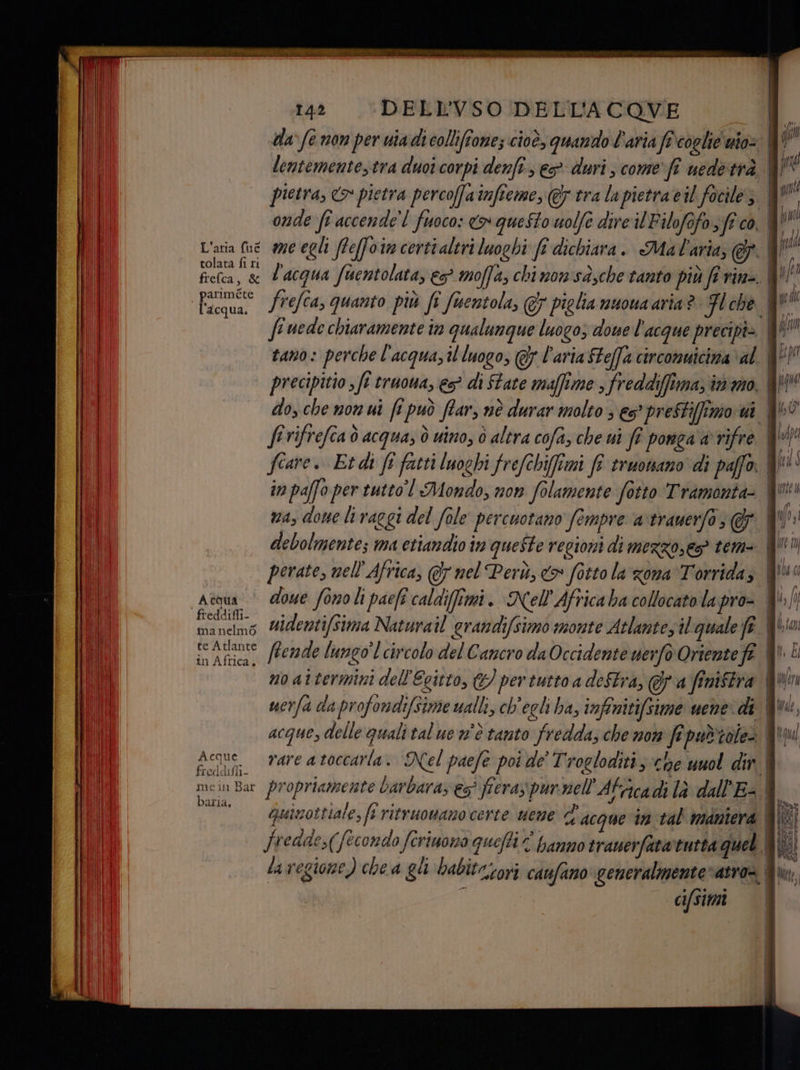 142 DELL'VSO DELL'ACQVE
da se non per uia di collisione; cioè, quando l'aria si coglie uio=
lentemente, tra duoi corpi densi, & duri, come si uede trà
pietra, & pietra percossa insieme, & tra la pietra e il focile;
onde si accende'l fuoco: & questo uolse dire il Filosofo, si co,
me egli stesso in certi altri luoghi si dichiara. Ma l'aria, &
l'acqua suentolata, & mossa, chi non sà, che tanto più si rin=
fresca, quanto più si suentola, & piglia nuoua aria? Il che
si uede chiaramente in qualunque luogo, doue l'acque precipi=
tano: perche l'acqua, il luogo, & l'aria stessa circonuicina al
precipitio, si truoua, & di state massime, freddissima, in mo,
do, che non ui si può star, nè durar molto, & prestissimo ui
si rifresca ò acqua, ò uino, ò altra cosa, che ui si ponga a rifre
scare. Et di si fatti luoghi freschissimi si truouano di passo,
in passo per tutto'l Mondo, non solamente sotto Tramonta-
na, doue li raggi del sole percuotano sempre a trauerso, &
debolmente; ma etiandio in queste regioni di mezzo, & tem-
perate, nell'Africa, & nel Perù, & sotto la zona Torrida,
doue sono li paesi caldissimi. Nell'Africa ha collocato la pro=
uidentissima Natura il grandissimo monte Atlante, il quale si
stende lungo'l circolo del Cancro da Occidente uerso Oriente fi
no ai termini dell'Egitto, & per tutto a destra, & a sinistra
uersa da profondissime ualli, ch'egli ha, infinitissime uene di
acque, delle quali tal ue n'è tanto fredda, che non si può tole=
rare a toccarla. Nel paese poi de' Trogloditi, che uuol dir
propriamente barbara, & fiera, pur nell'Africa di là dall'E=
quinottiale, si ritruouano certe uene d'acque in tal maniera
fredde, (secondo scriuono questi c'hanno trauersata tutta quel
la regione) che a gli habitatori causano generalmente atro=
cissimi
L'aria fué
tolata si ri
fresca, &
parimẽte
l'acqua.
Acqua
freddissi-
ma nel mõ
te Atlante
in Africa,
Acque
freddissi-
me in Bar
baria,